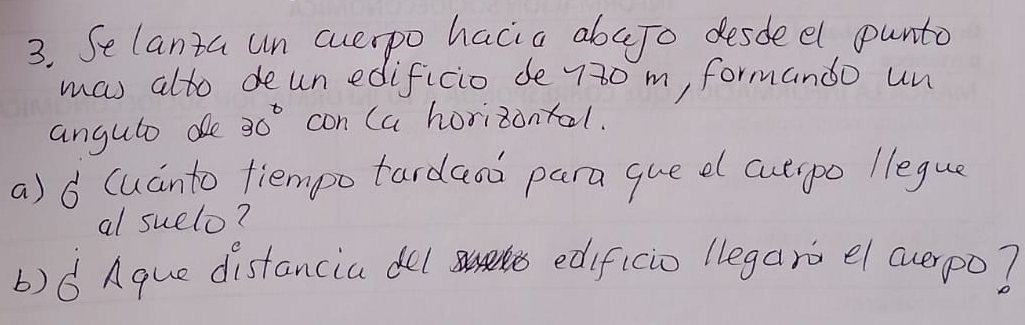 3. Se lanza un cuerpo hacia abajo desde el punto
mas alto de un edificio de 170 m, formando un
angulo de 30° con la horizontal.
a) ¿Cuánto tiempo tardará para que el cuerpo llegue
al suelo?
b) ¿A que distancia del edificio llegará el cuerpo?